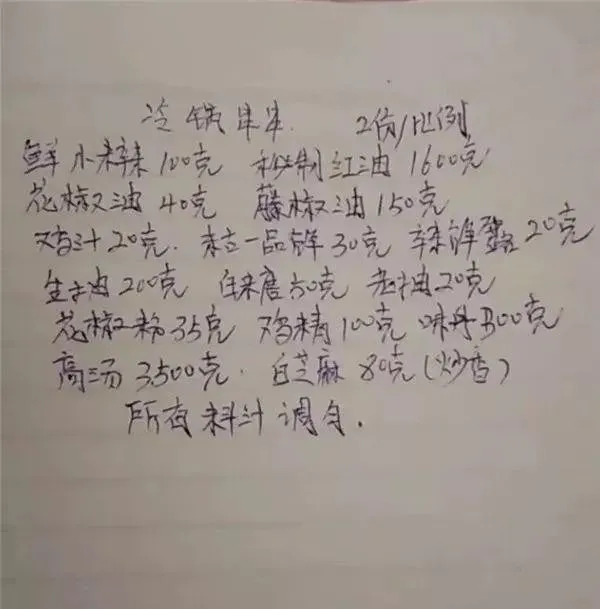 冷锅串串 2份/比例
鲜小米辣100克 秘制红油1600克
花椒油40克 藤椒油150克
鸡汁20克. 一品鲜30克 辣鲜露20克
生抽200克 50克 老抽20克
花椒粉35克 鸡精100克 味丹300克
高汤3500克. 白芝麻80克(炒香)
所有料汁调匀.